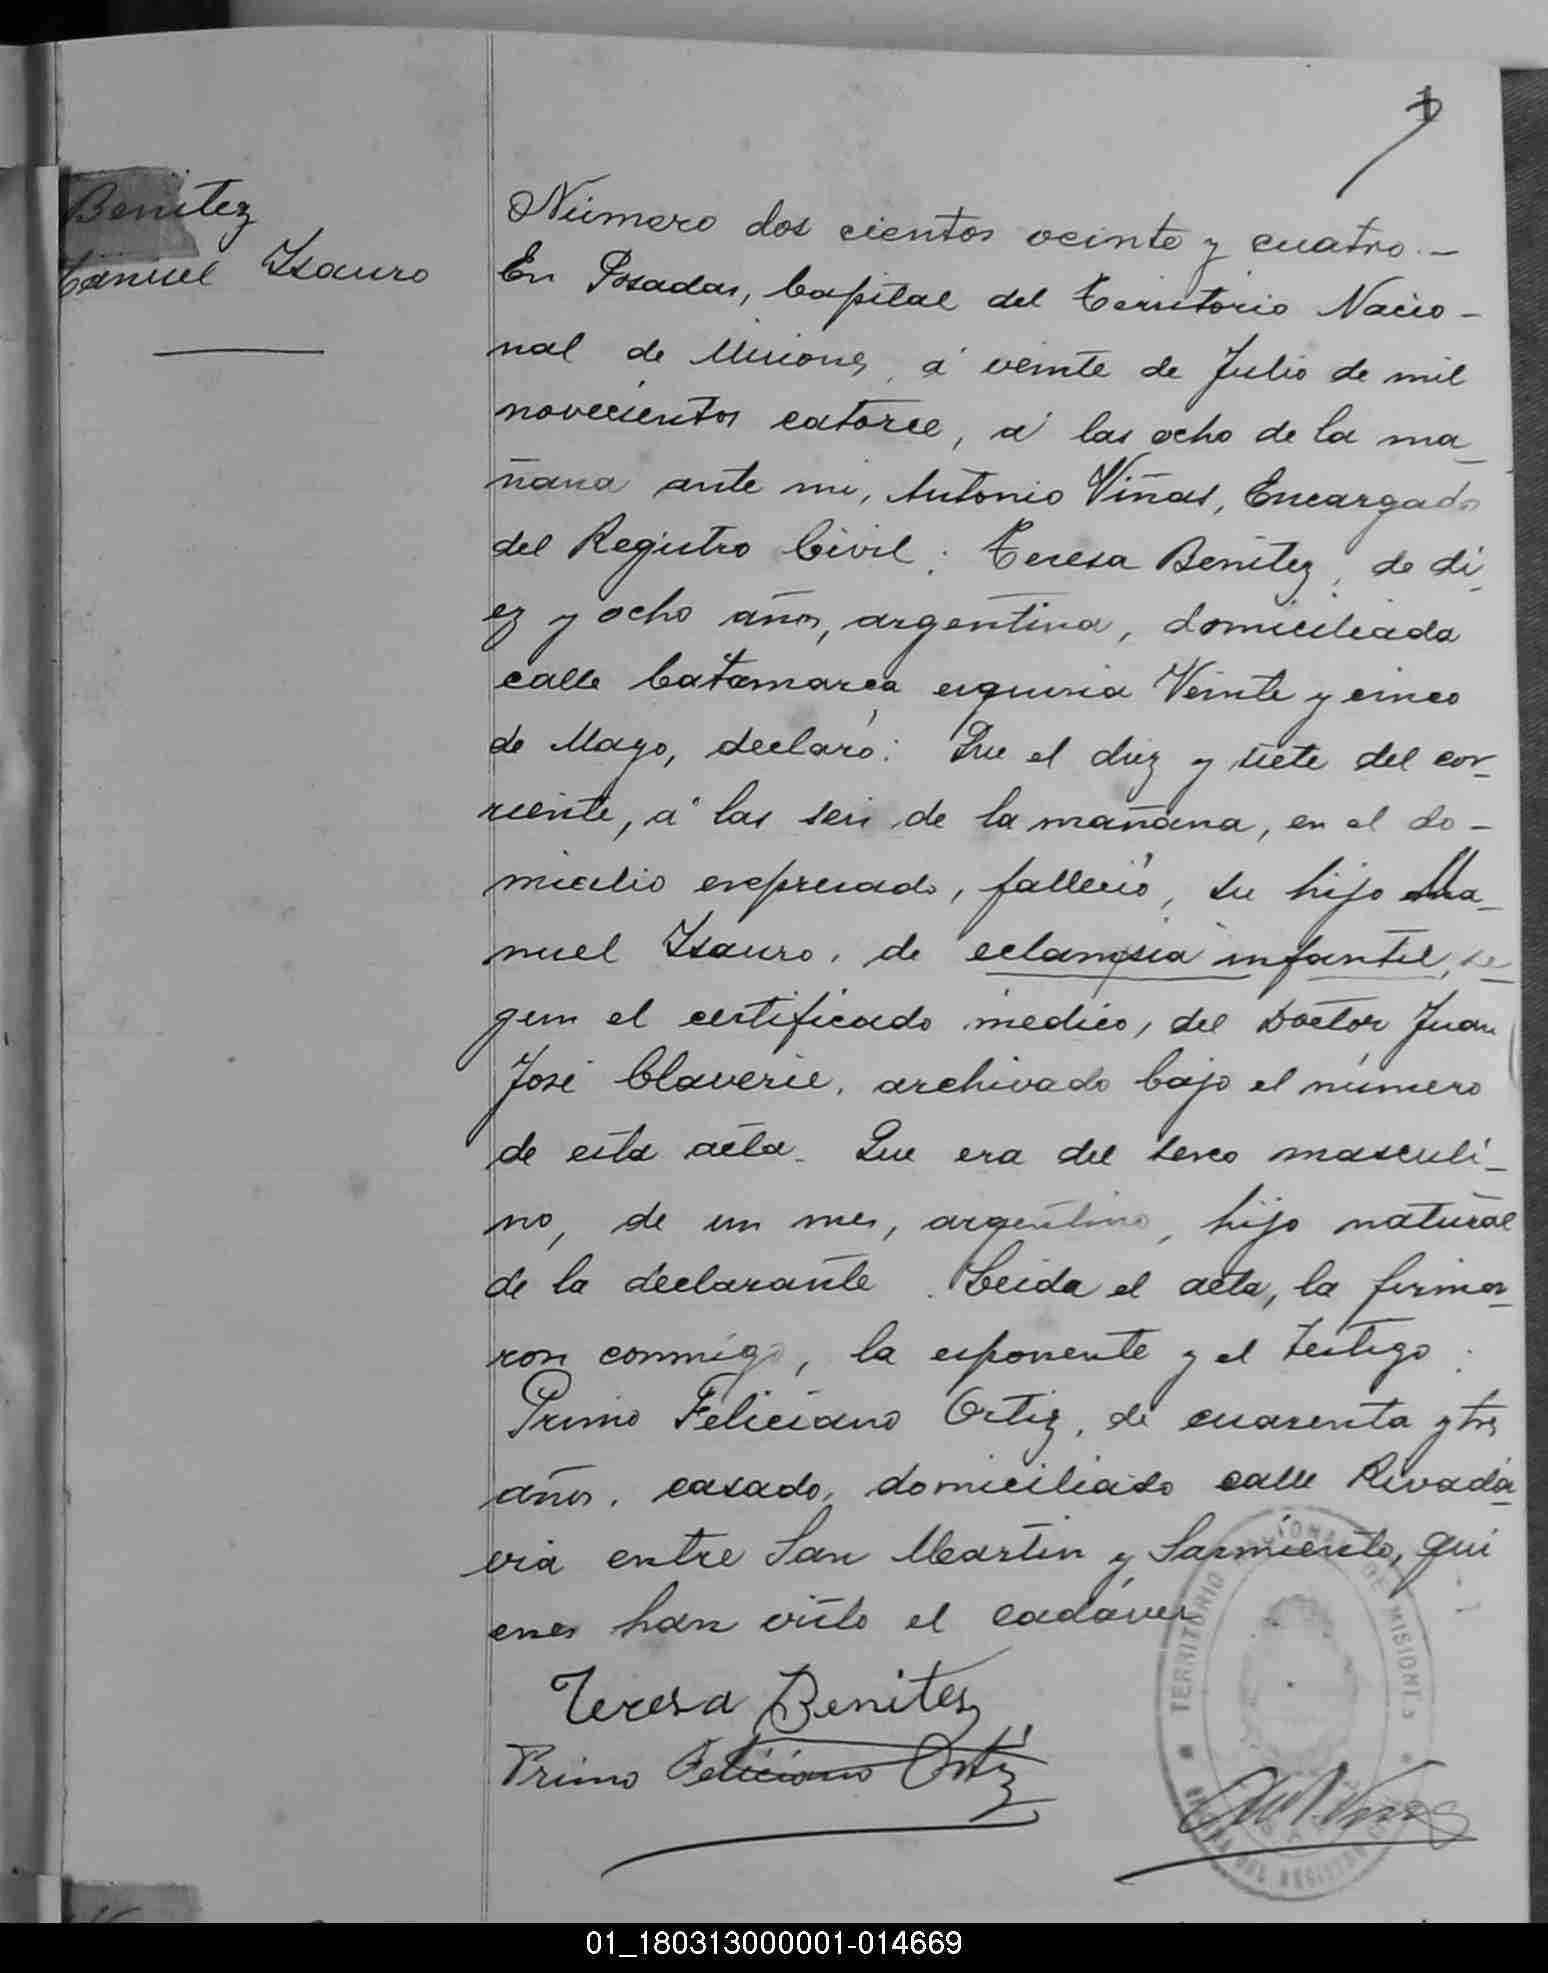 Benitez
Manuel Isauro
Número dos cientos veinte y cuatro.—
En Posadas, Capital del Territorio Nacio-
nal de Misiones, á veinte de Julio de mil
novecientos catorce, á las ocho de la ma-
ñana ante mi, Antonio Viñas, Encargado
del Registro Civil: Teresa Benitez, de di-
ez y ocho años, argentina, domiciliada
calle Catamarca esquina Veinte y cinco
de Mayo, declaró: Que el diez y siete del cor-
riente, á las seis de la mañana, en el do-
micilio expresado, falleció, su hijo Ma-
nuel Isauro, de eclampsia infantil, se-
gun el certificado médico, del Doctor Juan
José Claverie, archivado bajo el número
de esta acta. Que era del sexo masculi-
no, de un mes, argentino, hijo natural
de la declarante. Leida el acta, la firma-
ron conmigo, la esponente y el testigo:
Primo Feliciano Ortiz, de cuarenta y tres
años, casado, domiciliado calle Rivada-
via entre San Martin y Sarmiento, qui
enes han visto el cadáver
Teresa Benitez
Primo Feliciano Ortiz
TERRITORIO NACIONAL DE MISIONES
01_180313000001-014669